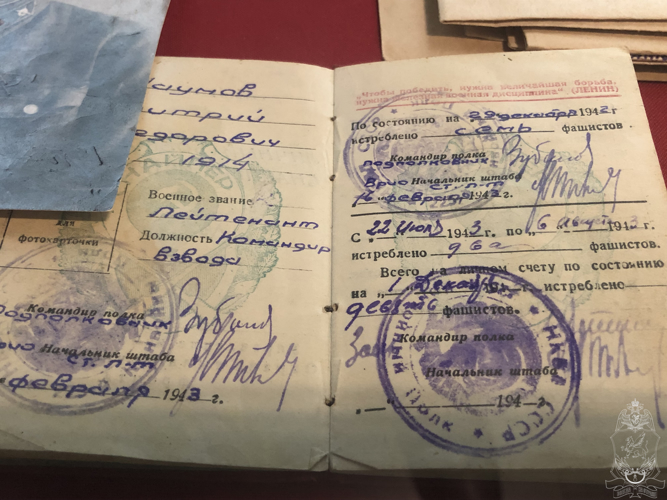 аумов
итрий
едорович
1914
Военное звание
Лейтенант
для
фотокарточки
Должность Командир
взвода
Командир полка
подполковник
Врио Начальник штаба
ст. л-т
февраля 1943 г.
"Чтобы победить, нужна величайшая борьба,
нужна военная дисциплина" (ЛЕНИН)
По состоянию на декабря 1942 г
истреблено семь фашистов.
Командир полка
подполковник
Врио Начальник штаба
ст. л-т
16 февраля 1943 г.
С „22 июля 3 по „6 август 194 3
истреблено два фашистов.
Всего на лицевом счету по состоянию
на „1 декаб г. истреблено
девять фашистов.
Командир полка
Начальник штаба
194 г.
полк * НКВД СССР *